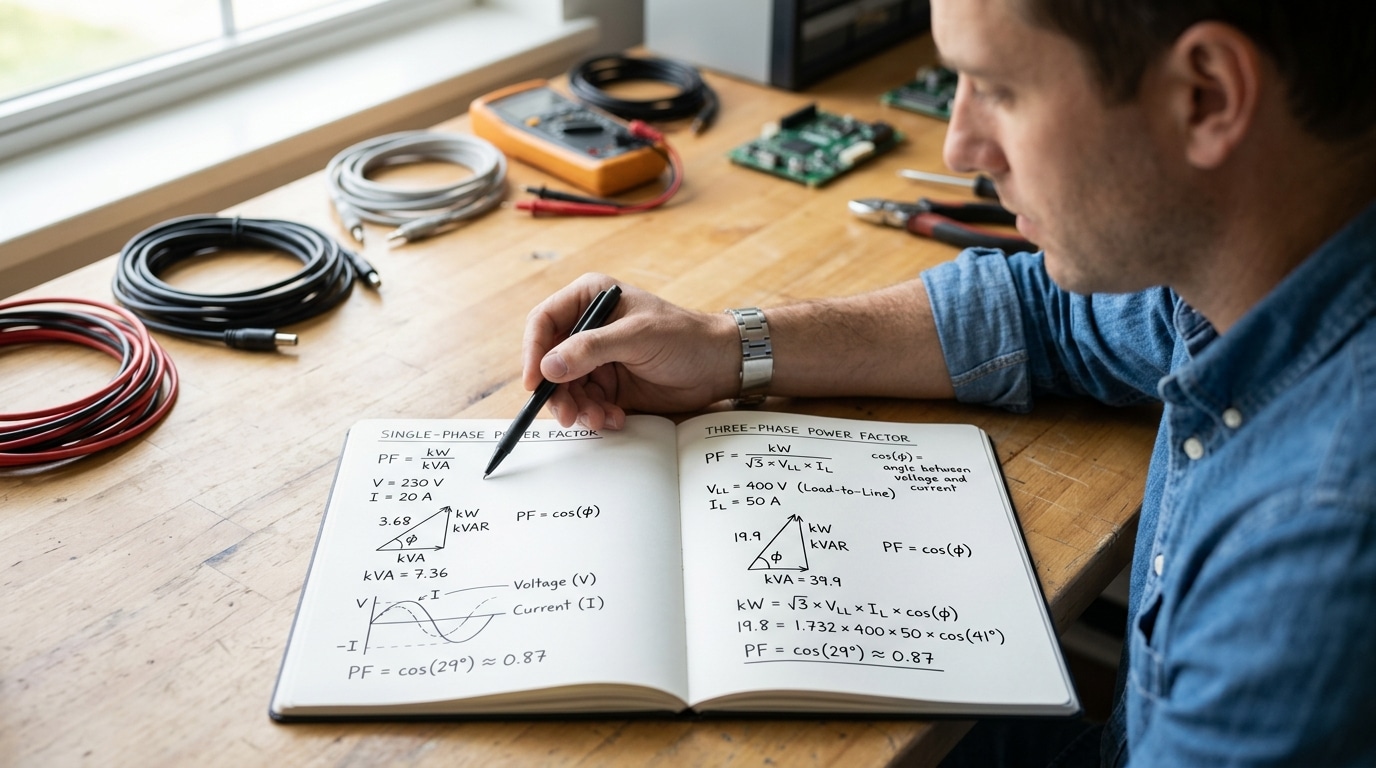 SINGLE-PHASE POWER FACTOR
PF = kW / kVA
V = 230 V
I = 20 A
3.68
kW
kVAR
ϕ
kVA
PF = cos(ϕ)
kVA = 7.36
V
I
Voltage (V)
Current (I)
–I
PF = cos(29°) ≈ 0.87
THREE-PHASE POWER FACTOR
PF = kW / √3 × VLL × IL
cos(ϕ) =
angle between
voltage and
current
VLL = 400 V (Load-to-Line)
IL = 50 A
19.9
kW
kVAR
ϕ
PF = cos(ϕ)
kVA = 39.9
kW = √3 × VLL × IL × cos(ϕ)
19.8 = 1.732 × 400 × 50 × cos(41°)
PF = cos(29°) ≈ 0.87